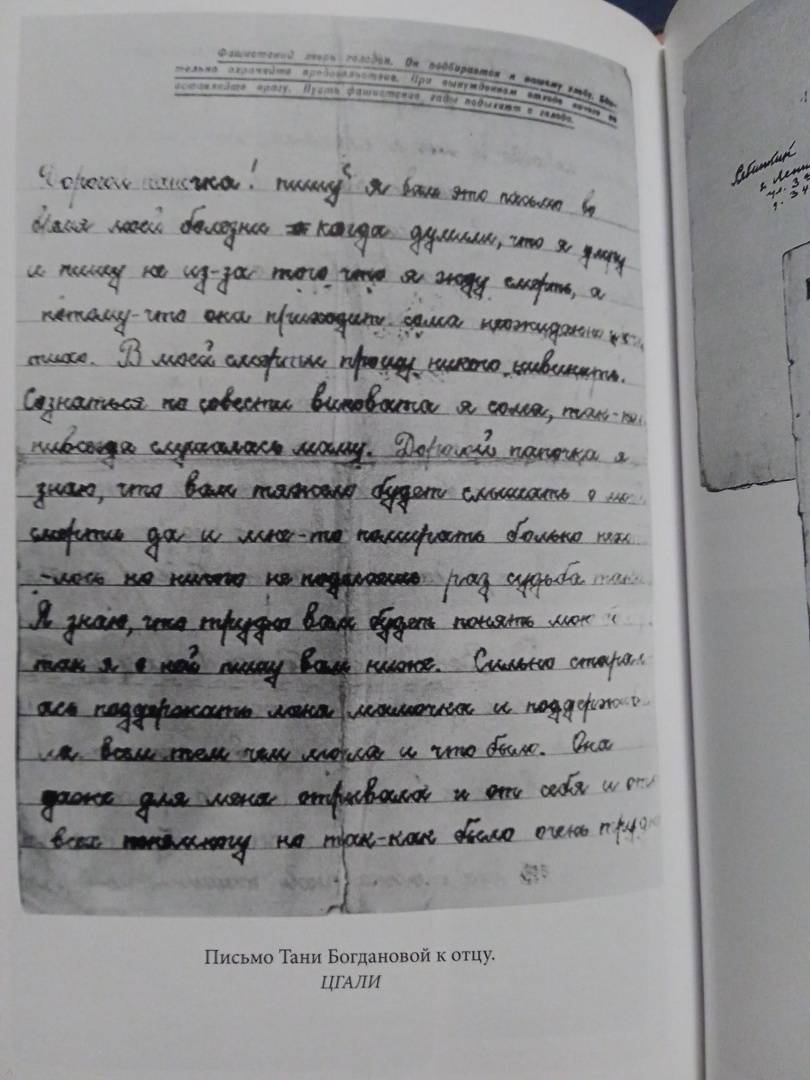 Фашистский зверь голоден. Он подбирается к нашему хлебу. Бди-
тельно охраняйте продовольствие. При вынужденном отходе ничего не
оставляйте врагу. Пусть фашистские гады подыхают с голода.
Дорогой папочка! пишу я вам это письмо во
время моей болезни когда думали, что я умру
и пишу не из-за того что я жду смерть, а
потому-что она приходит сама неожиданно и
тихо. В моей смерти прошу никого невинить.
Сознаться по совести виновата я сама, так-как
невсегда слушалась маму. Дорогой папочка я
знаю, что вам тяжело будет слышать о
смерти да и мне-то помирать больно
-лось но ничего не поделаешь раз судьба
Я знаю, что трудно вам будет понять мою
так я о ней пишу вам ниже. Сильно старал-
ась поддержать меня мамочка и поддержива-
ла всем тем чем могла и что было. Она
даже для меня отрывала и от себя и от
всех понемногу но так-как было очень трудно
Письмо Тани Богдановой к отцу.
ЦГАЛИ